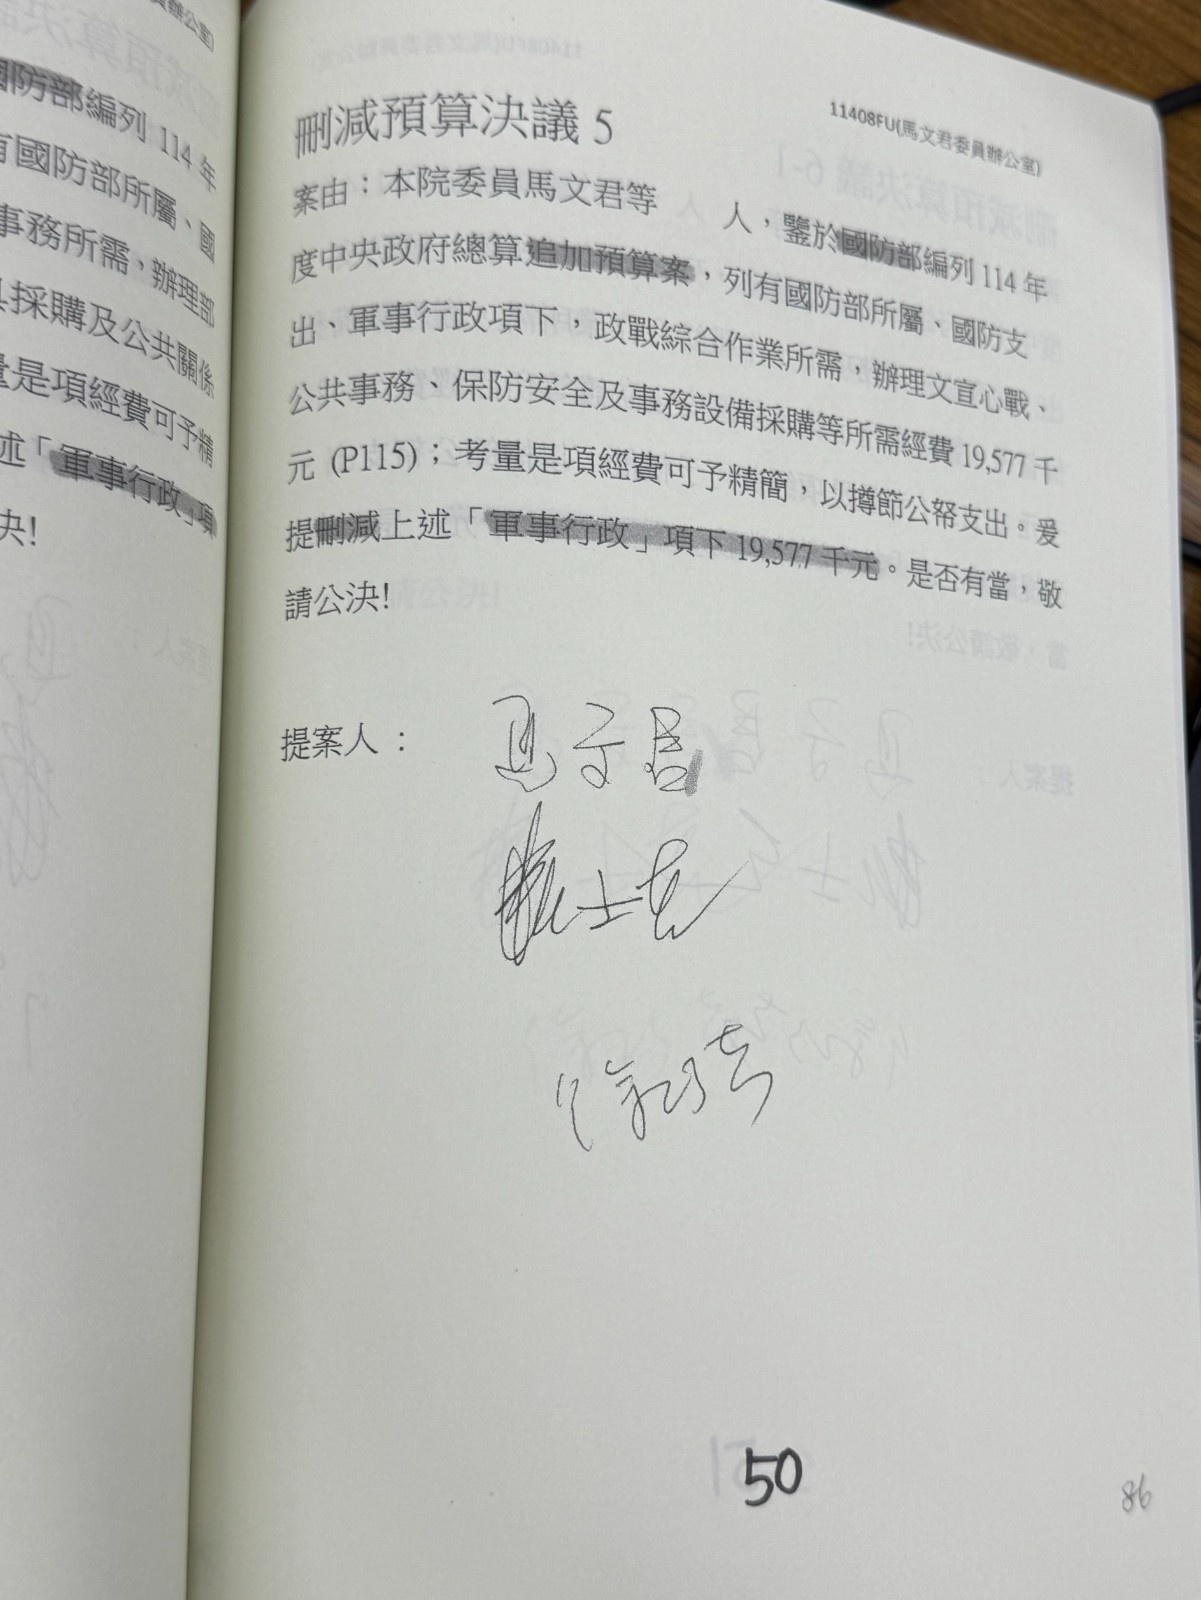 員辦公室)
國防部編列 114 年
有國防部所屬、國
事務所需，辦理部
採購及公共關係
量是項經費可予精
述「軍事行政」項
決!
11408FU(馬文君委員辦公室)
刪減預算決議 5
案由：本院委員馬文君等　　人，鑒於國防部編列 114 年
度中央政府總算追加預算案，列有國防部所屬、國防支
出、軍事行政項下，政戰綜合作業所需，辦理文宣心戰、
公共事務、保防安全及事務設備採購等所需經費 19,577 千
元 (P115)；考量是項經費可予精簡，以撙節公帑支出。爰
提刪減上述「軍事行政」項下 19,577 千元。是否有當，敬
請公決!
提案人：
馬文君
50
86